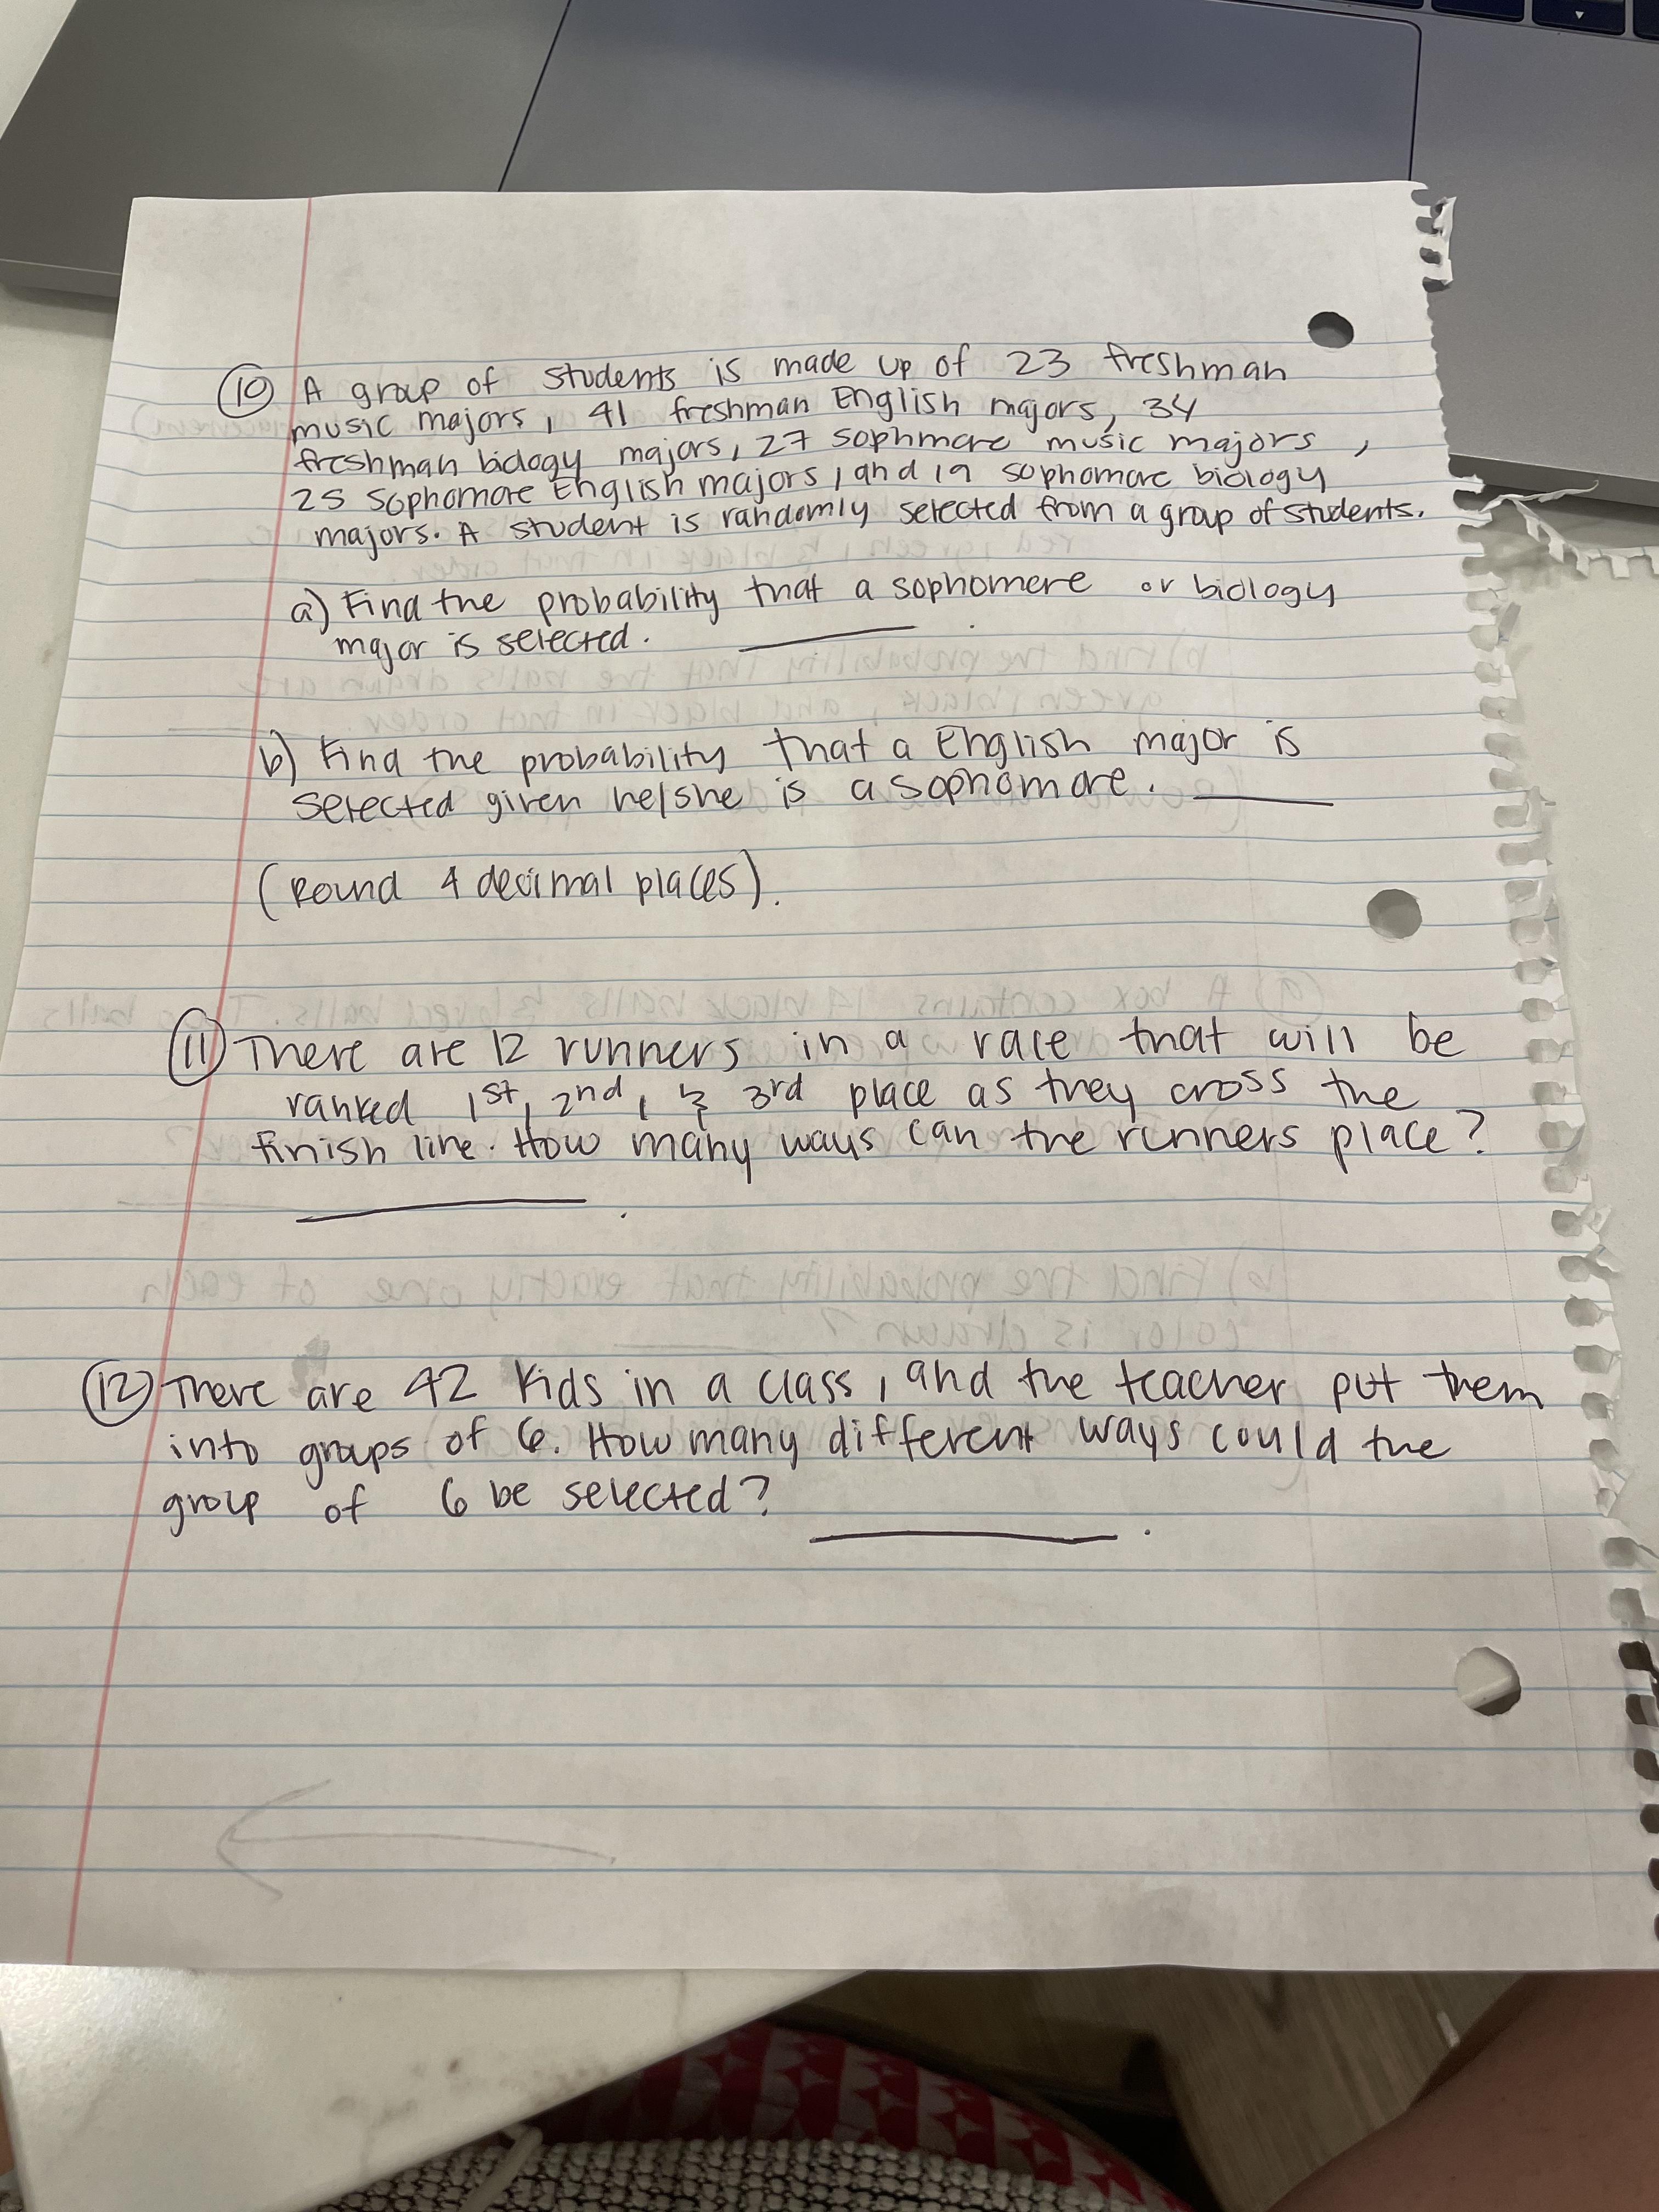 10 A group of students is made up of 23 freshman
music majors, 41 freshman English majors, 34
freshman biology majors, 27 sophmore music majors,
25 sophomore English majors, and 19 sophomore biology
majors. A student is randomly selected from a group of students.
a) Find the probability that a sophomore or biology
major is selected. ______.
b) Find the probability that a English major is
selected given he/she is a sophomore. ______
(Round 4 decimal places).
11 There are 12 runners in a race that will be
ranked 1st, 2nd, & 3rd place as they cross the
finish line. How many ways can the runners place?
______.
12 There are 42 kids in a class, and the teacher put them
into groups of 6. How many different ways could the
group of 6 be selected? ______.